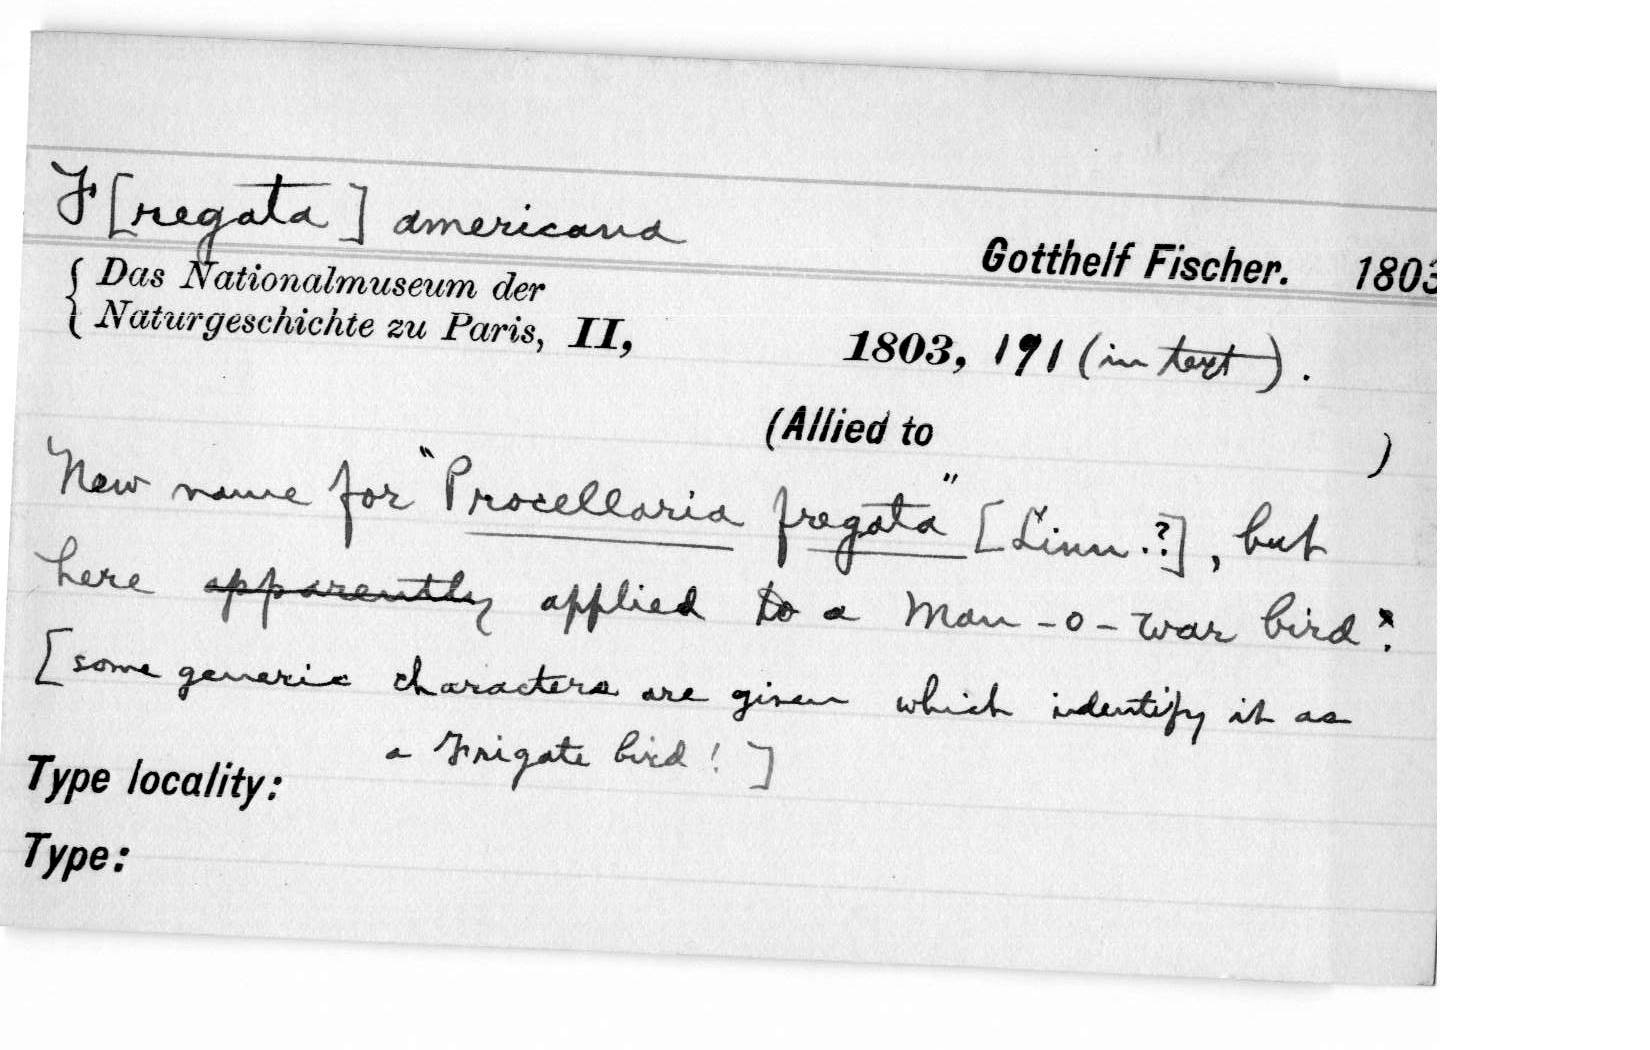 F[regata] americana
Gotthelf Fischer. 1803
{ Das Nationalmuseum der
Naturgeschichte zu Paris, II, 1803, 191 (in text).
(Allied to )
New name for "Procellaria fregata" [Linn.?], but
here apparently applied to a Man-o-war bird?
[some generic characters are given which identify it as
a Frigate bird! ]
Type locality:
Type: